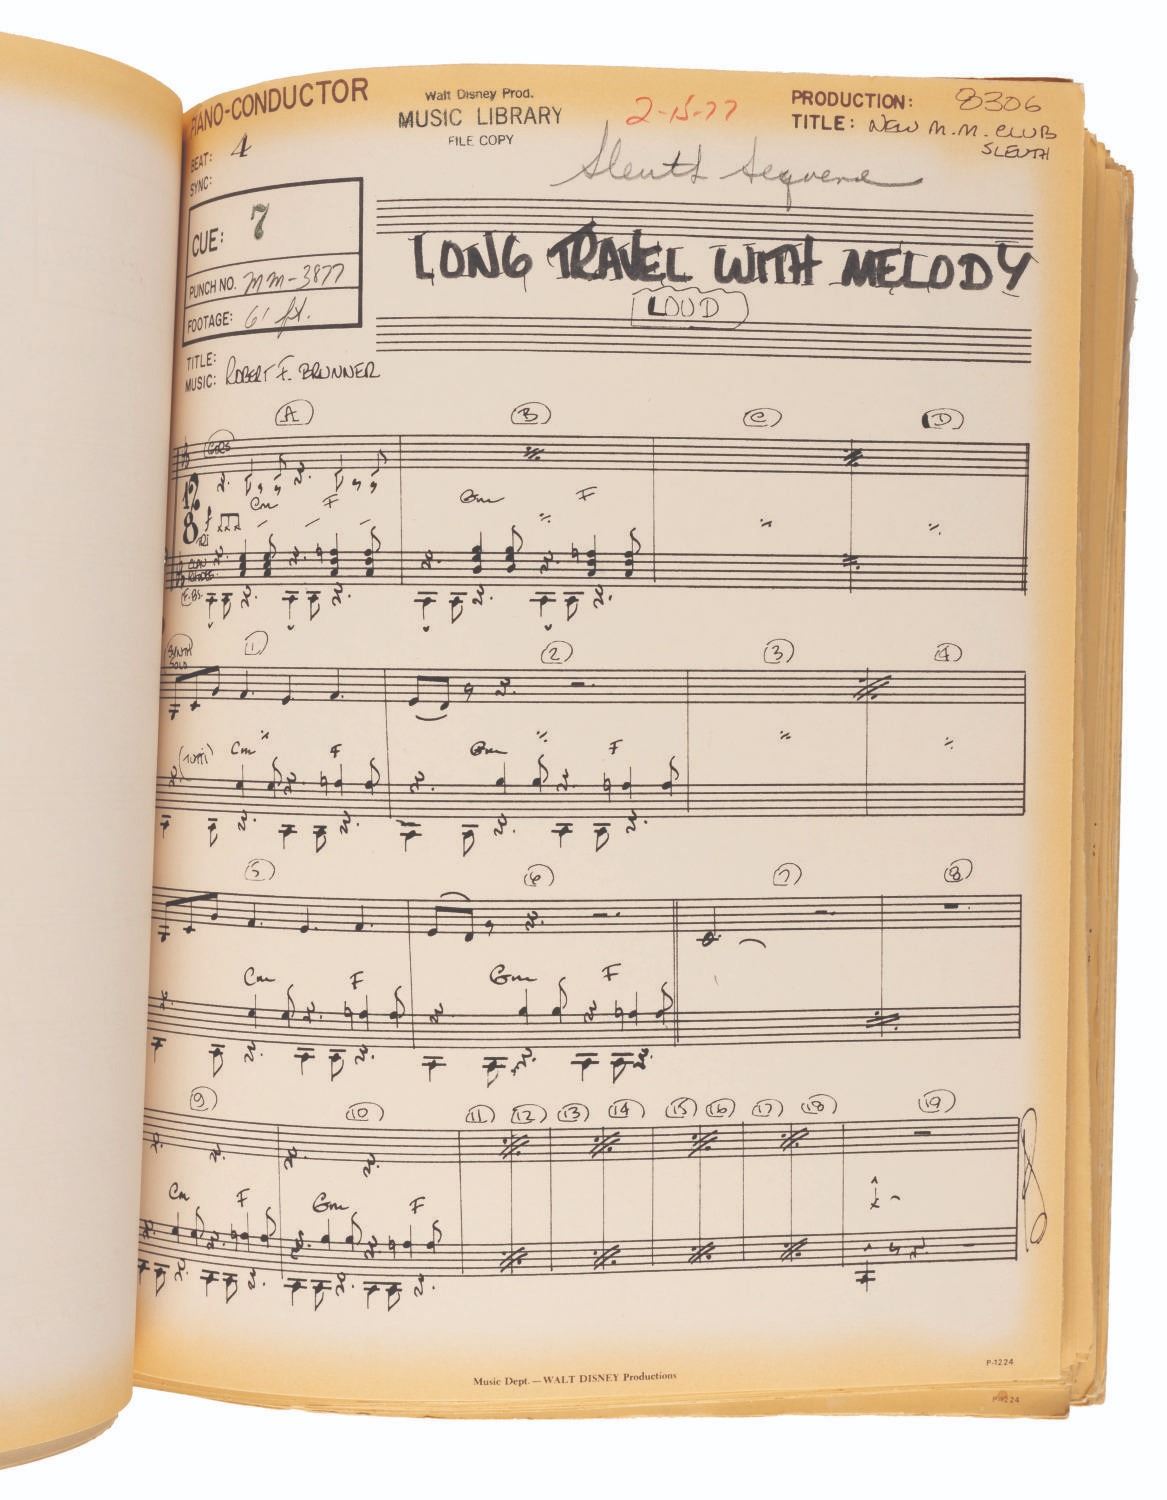 PIANO-CONDUCTOR
Walt Disney Prod.
MUSIC LIBRARY
FILE COPY
2-15-77
PRODUCTION: 8306
TITLE: NEW M.M. CLUB
SLEUTH
BEAT: 4
SYNC:
Sleuth Sequence
CUE: 7
PUNCH NO. MM-3877
FOOTAGE: 61 ft.
LONG TRAVEL WITH MELODY
LOUD
TITLE:
MUSIC: ROBERT F. BRUNNER
A B C D
GTRS
12
8
Cm F Gm F
f
TRI
CLAV
RHODES
E. BS.
SYNTH
SOLO
1 2 3 4
(TUTTI) Cm F Gm F
5 6 7 8
Cm F Gm F
9 10 11 12 13 14 15 16 17 18 19
Cm F Gm F
P-1224
Music Dept. — WALT DISNEY Productions
P-1224